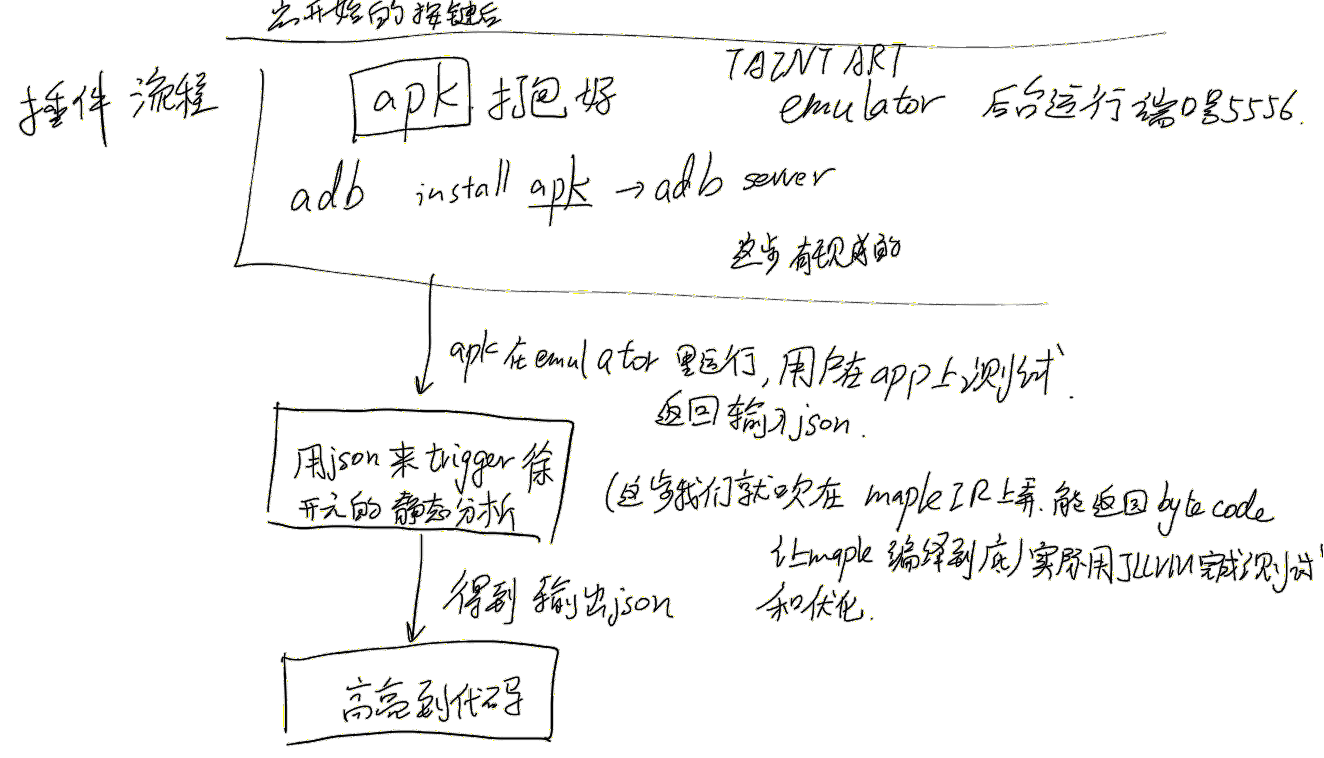 开始的按键后
插件 流程
apk 打包好
TAINT ART
emulator 后台运行端口号5556.
adb install apk → adb server
这步有现成的
apk在emulator里运行,用户在app上测试.
返回输入json.
用json来trigger徐
开元的静态分析
(这步我们就吹在 maple IR上弄.能返回bytecode
让maple 编译到底)实际用了LLVM完成测试
和优化.
得到 输出json
高亮到代码